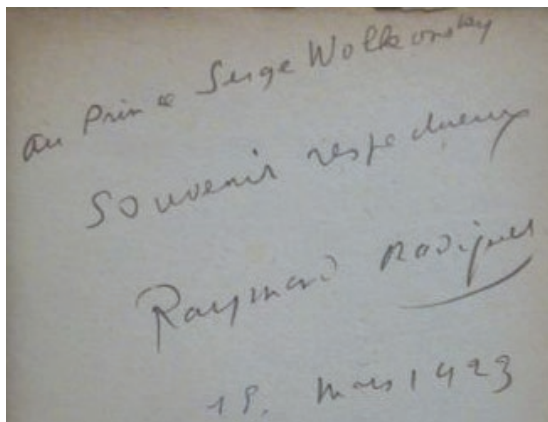 au Prince Serge Wolkonsky
Souvenir respectueux
Raymond Radiguet
mars 1923